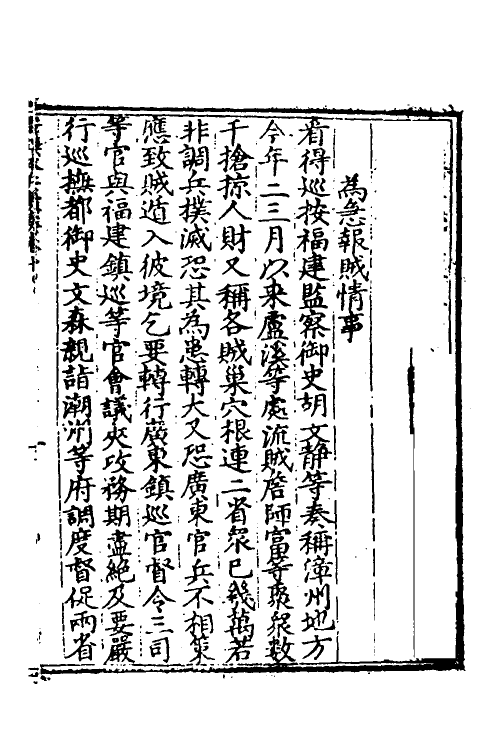 為急報賊情事
看得巡按福建監察御史胡文靜等奏稱漳州地方
今年二三月以来盧溪等處流賊詹師富等聚衆數
千搶掠人財又稱各賊巢穴根連二省衆已幾萬若
非調兵撲滅恐其為患轉大又恐廣東官兵不相策
應致賊遁入彼境乞要轉行廣東鎮巡官督令三司
等官與福建鎮巡等官會議夾攻務期盡絕及要嚴
行巡撫都御史文森親詣潮州等府調度督促兩省